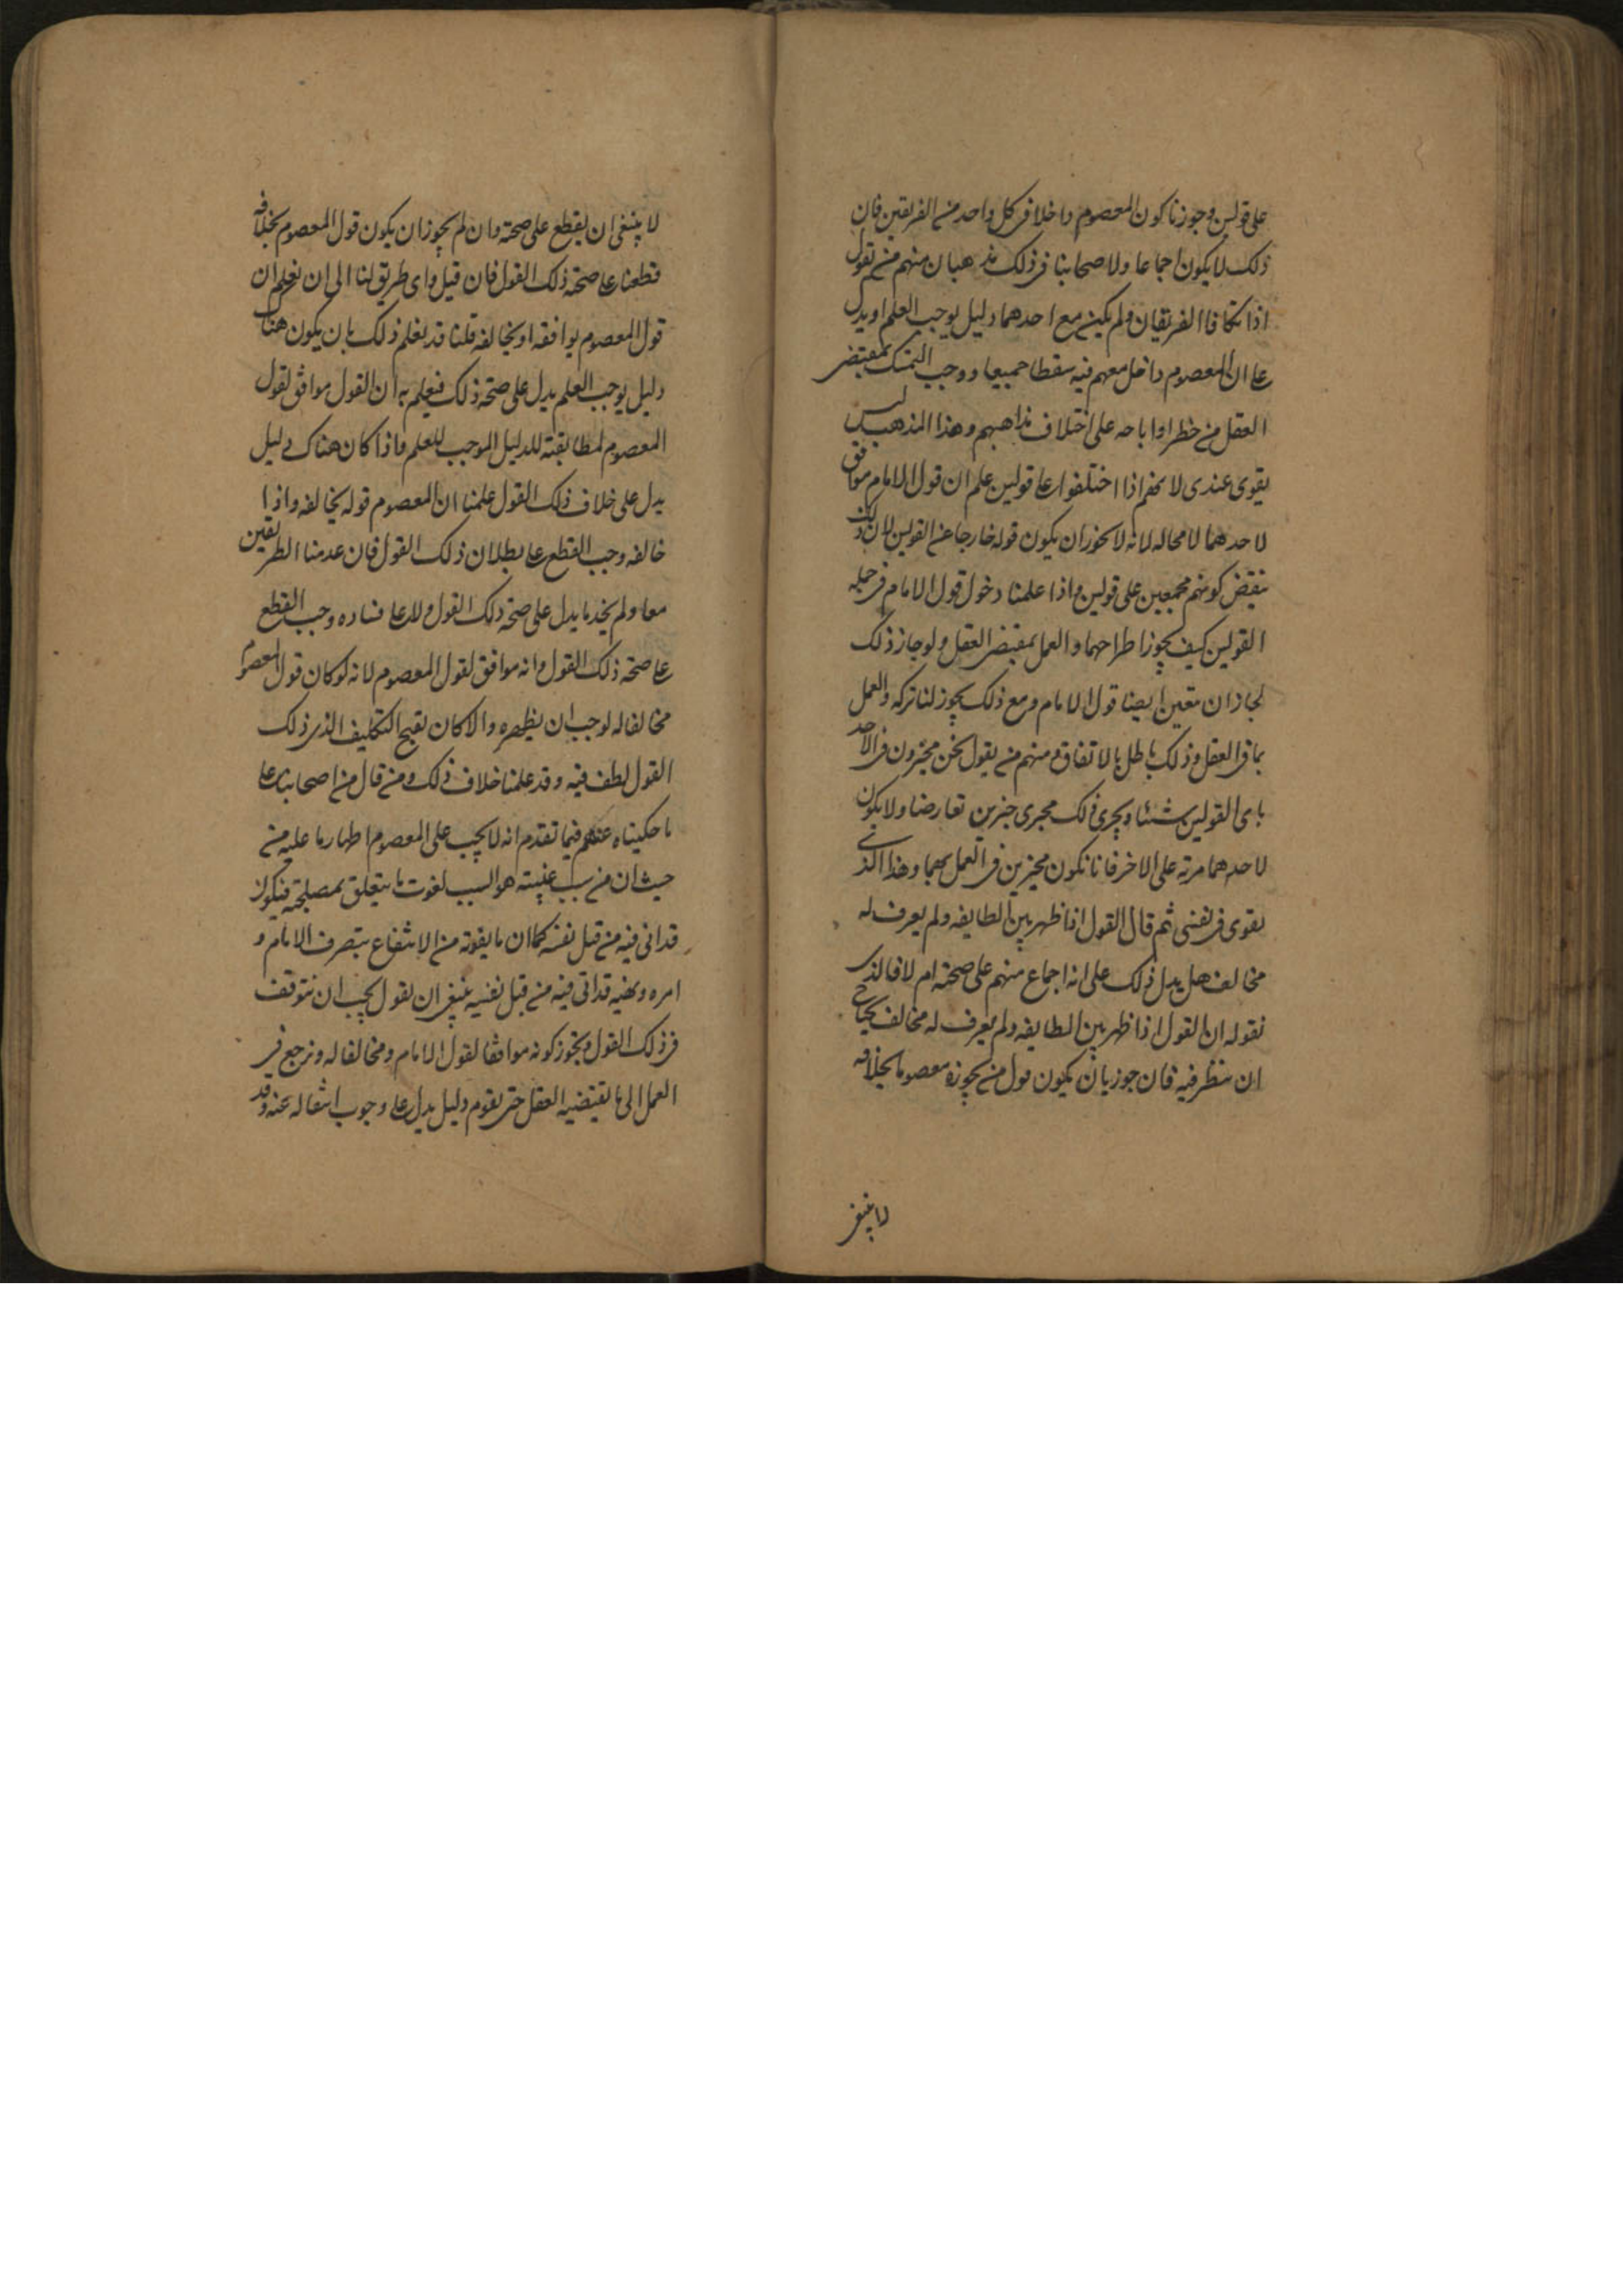 على قولين وجوزنا كون المعصوم داخلا فى كل واحد من الفريقين فان
ذلك لا يكون اجماعا ولاصحابنا فى ذلك مذهبان منهم من يقول
اذا تكافا الفريقان ولم يكن مع احدهما دليل يوجب العلم او يدل
على ان المعصوم داخل معهم فيه سقطا جميعا ووجب التمسك بمقتضى
العقل من خطر او اباحه على اختلاف مذاهبهم وهذا المذهب ليس
يقوى عندى لانهم اذا اختلفوا على قولين علم ان قول الامام موافق
لاحدهما لا محاله لانه لا يجوز ان يكون قوله خارجا عن القولين لان ذلك
ينقض كونهم مجمعين على قولين واذا علمنا دخول قول الامام فى جمله
القولين كيف يجوز اطراحهما والعمل بمقتضى العقل ولو جاز ذلك
لجاز ان يتعين ايضا قول الامام ومع ذلك يجوز لنا تركه والعمل
بما فى العقل وذلك باطل بالاتفاق ومنهم من يقول نحن مخيرون فى الاخذ
باى القولين شئنا ويجرى ذلك مجرى خبرين تعارضا ولا يكون
لاحدهما مزية على الاخر فانا نكون مخيرين فى العمل بهما وهذا الذى
يقوى فى نفسى ثم قال القول اذا ظهر بين الطايفه ولم يعرف له
مخالف هل يدل ذلك على انه اجماع منهم على صحته ام لا فالذى
نقوله ان القول اذا ظهر بين الطايفه ولم يعرف له مخالف يحتاج
ان ينظر فيه فان جوز بان يكون قول من يجوزه معصوما بخلافه
لا ينبغى
لا ينبغى ان يقطع على صحته وان لم يجوز ان يكون قول المعصوم بخلافه
قطعنا على صحه ذلك القول فان قيل واى طريق لنا الى ان نعلم ان
قول المعصوم يوافقه او يخالفه قلنا قد يعلم ذلك بان يكون هناك
دليل يوجب العلم يدل على صحه ذلك فيعلم به ان القول موافق لقول
المعصوم لمطابقته للدليل الموجب للعلم واذا كان هناك دليل
يدل على خلاف ذلك القول علمنا ان المعصوم قوله يخالفه واذا
خالفه وجب القطع على بطلان ذلك القول فان عدمنا الطريقين
معا ولم نجد ما يدل على صحه ذلك القول ولا على فساده وجب القطع
على صحه ذلك القول وانه موافق لقول المعصوم لانه لو كان قول المعصوم
مخالفا له لوجب ان يظهره والا كان يقبح التكليف الذى ذلك
القول لطف فيه وقد علمنا خلاف ذلك ومن قال من اصحابنا على
ما حكيناه عنهم فيما تقدم انه لا يجب على المعصوم اظهار ما عليه من
حيث ان من سبب غيبته هو السبب لفوت ما يتعلق بمصلحته فيكون
قد اتى فيه من قبل نفسه كما ان ما يفوته من الانتفاع بتصرف الامام و
امره ونهيه قد اتى فيه من قبل نفسه ينبغى ان نقول يجب ان نتوقف
فى ذلك القول ويجوز كونه موافقا لقول الامام ومخالفا له ونرجع فى
العمل الى ما يقتضيه العقل حتى يقوم دليل يدل على وجوب انتقاله عنه وقد